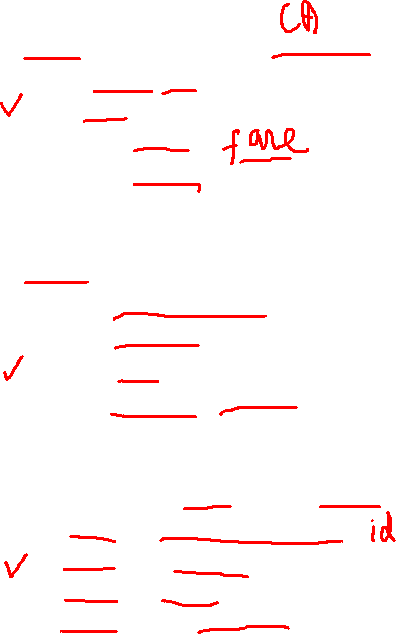 CA
fare
id